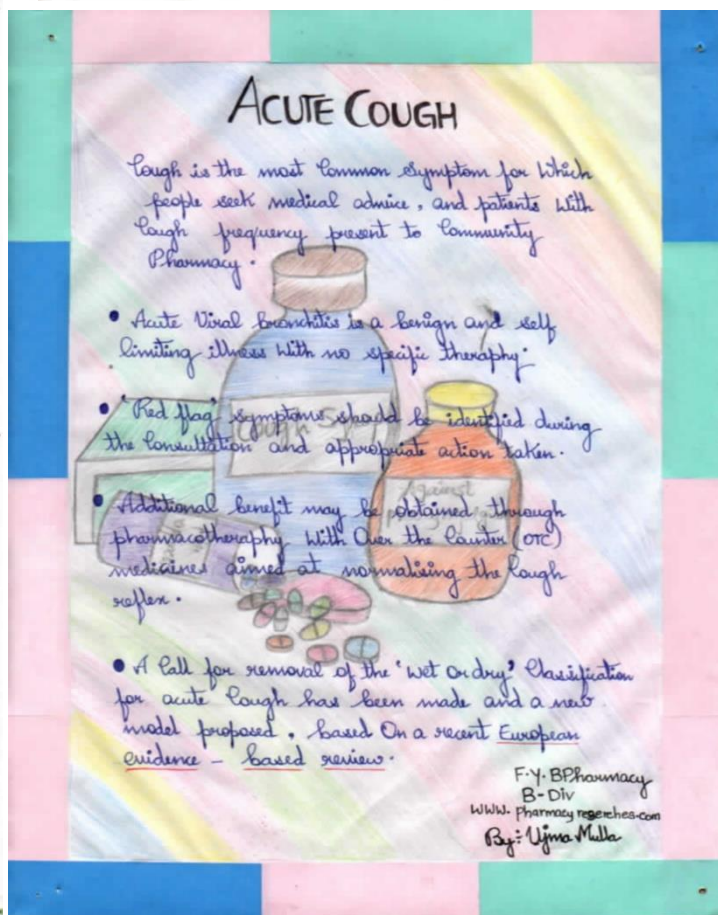 ACUTE COUGH
Cough is the most Common Symptom for Which
people seek medical advice, and patients With
Cough frequency present to Community
Pharmacy.
• Acute Viral bronchitis is a benign and self
limiting illness With no specific theraphy.
• 'Red flag' symptoms should be identified during
the Consultation and appropriate action taken.
Cough
Against
• Additional benefit may be obtained through
pharmacotheraphy With Over the Counter (OTC)
medicines aimed at normalising the Cough
reflex.
• A Call for removal of the 'wet or dry' Classification
for acute Cough has been made and a new
model proposed, based On a recent European
evidence - based review.
F.Y. BPharmacy
B-Div
WWW. Pharmacy reserches.com
By:- Ujma Mulla